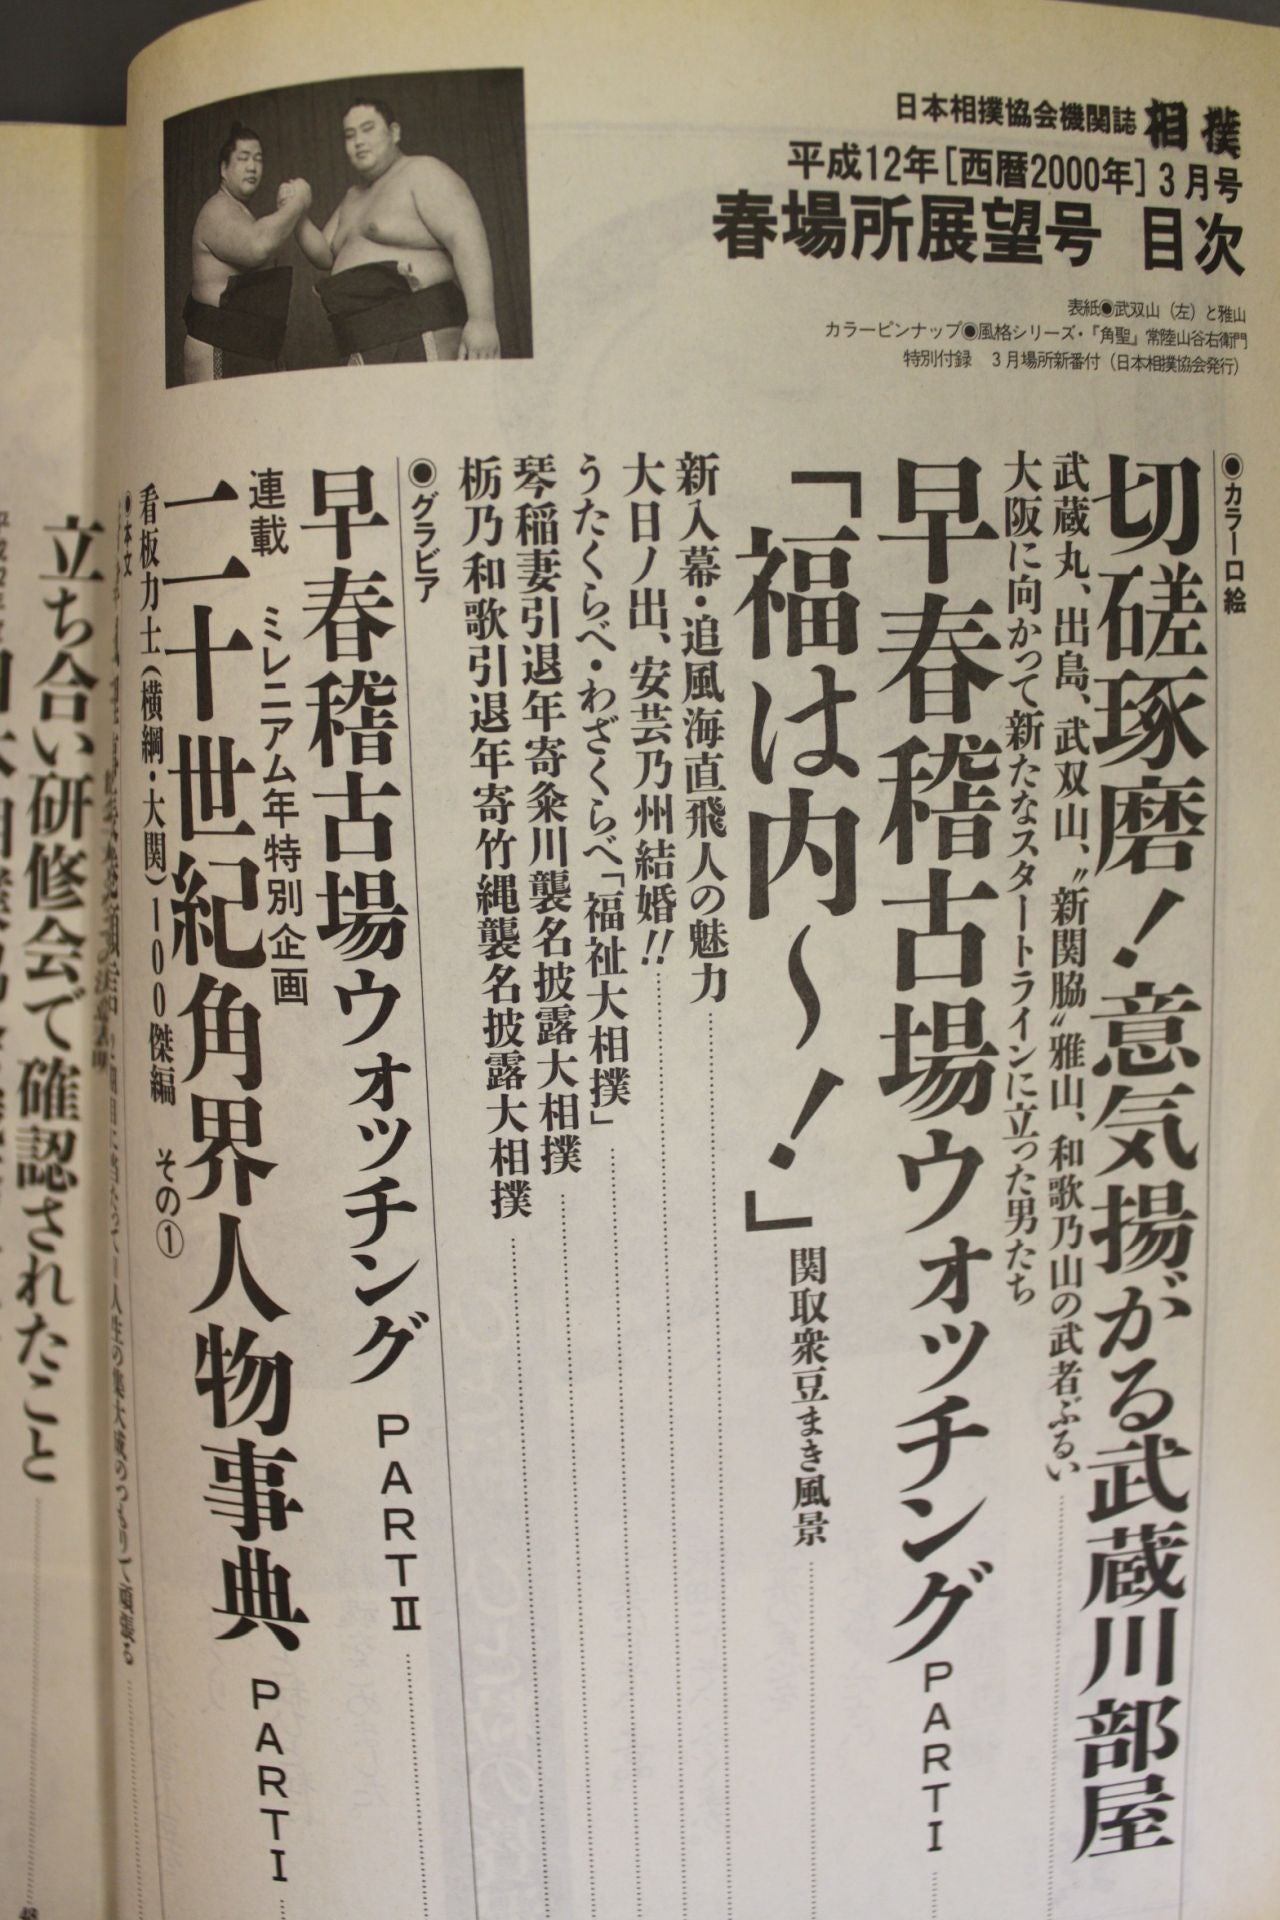 日本相撲協会機関誌 相撲
平成12年[西暦2000年]3月号
春場所展望号 目次
表紙◉武双山(左)と雅山
カラーピンナップ◉風格シリーズ・『角聖』常陸山谷右衛門
特別付録 3月場所新番付(日本相撲協会発行)
◉カラー口絵
切磋琢磨!意気揚がる武蔵川部屋
武蔵丸、出島、武双山、〝新関脇〟雅山、和歌乃山の武者ぶるい
大阪に向かって新たなスタートラインに立った男たち
早春稽古場ウォッチング PARTⅠ
「福は内〜!」 関取衆豆まき風景
新入幕・追風海直飛人の魅力
大日ノ出、安芸乃州結婚!!
うたくらべ・わざくらべ「福祉大相撲」
琴稲妻引退年寄粂川襲名披露大相撲
栃乃和歌引退年寄竹縄襲名披露大相撲
◉グラビア
早春稽古場ウォッチング PARTⅡ
連載 ミレニアム年特別企画
二十世紀角界人物事典 PARTⅠ
看板力士(横綱・大関)100傑編 その①
◉本文
立ち合い研修会で確認されたこと